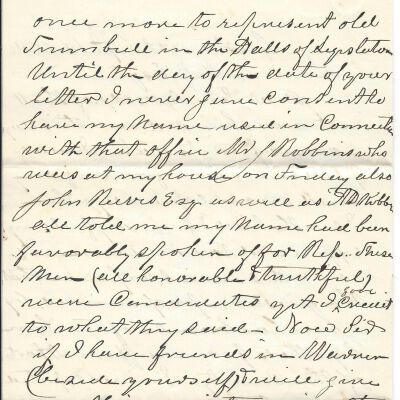 once more to represent old
Trumbull in the Halls of Legislation
Until the day of the date of your
letter I never gave consent to
have my Name used in Connection
with that office Mr J Robbins who
was at my house on Friday also
John Reeves Esq as well as
all told me my Name had been
favorably spoken of for Rep.. These
Men (all honorable & truthful)
were Candidates yet I gave Credit
to what they said - Now Sir
if I have friends in Warren
(beside yourself) & will give